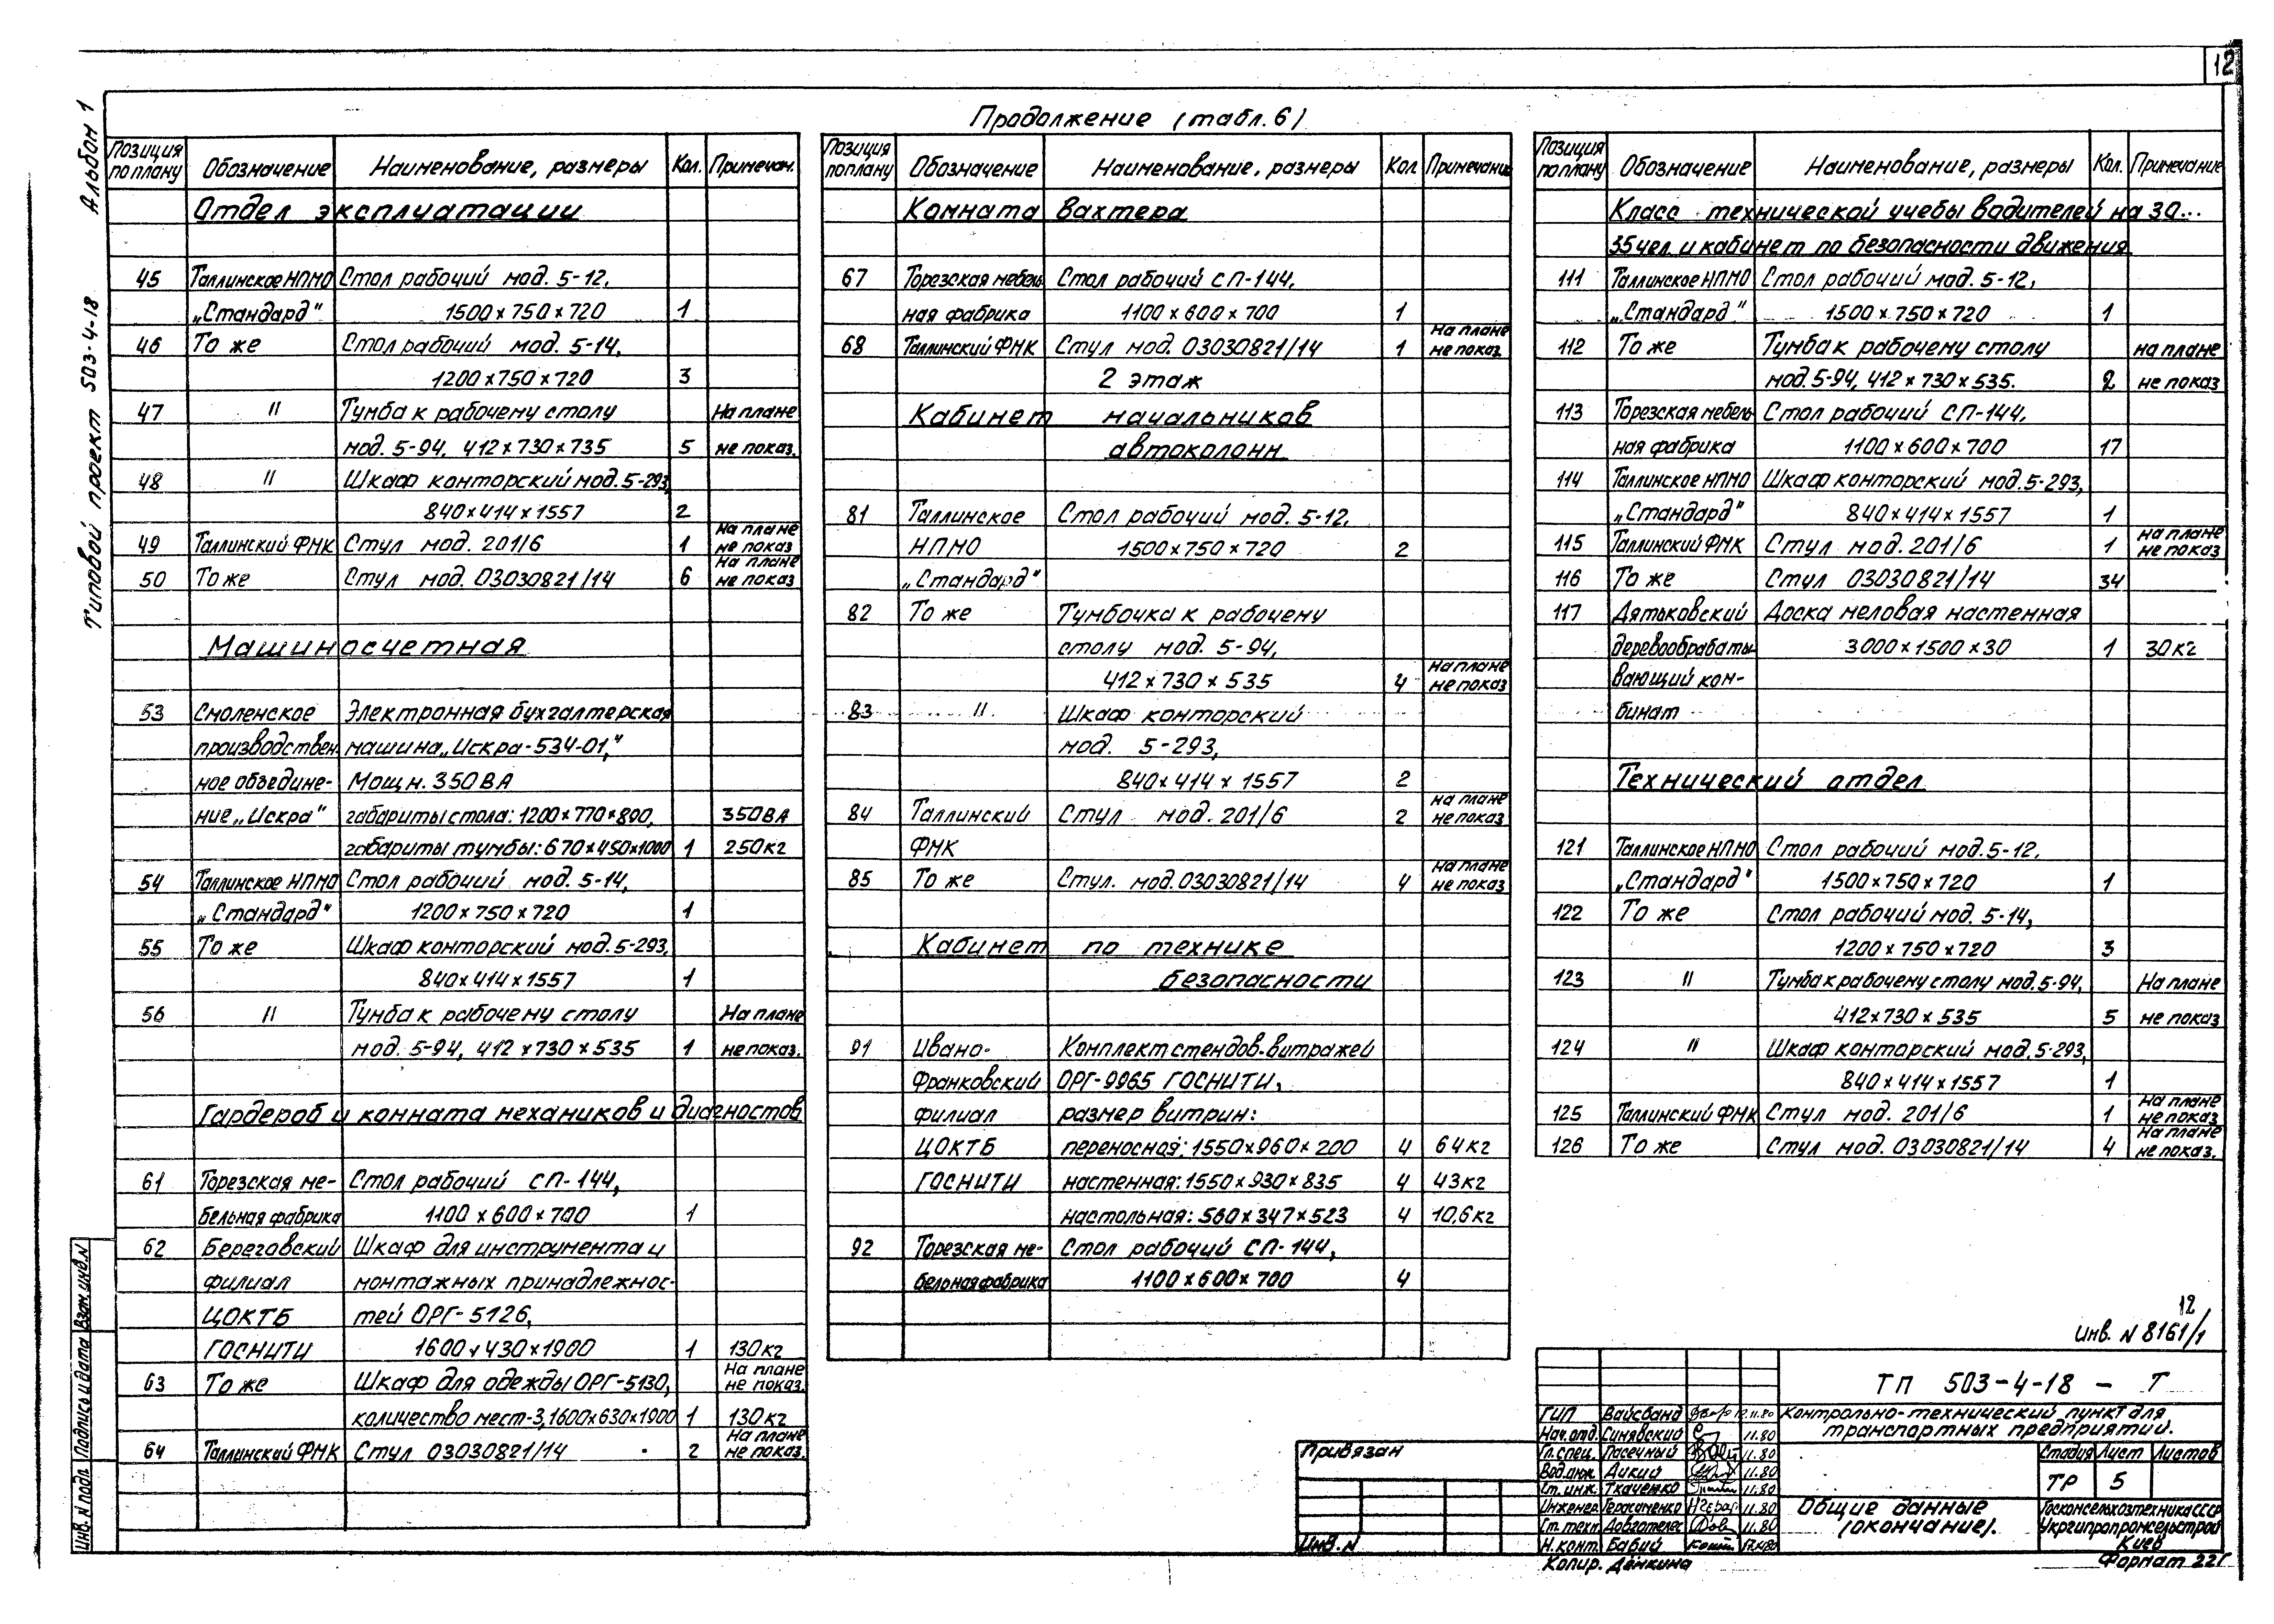 12
Альбом 1
Типовой проект 503-4-18
Продолжение (табл. 6)
Позиция по плану Обозначение Наименование, размеры Кол. Примечан.
Отдел эксплуатации
45 Таллинское НПМО Стол рабочий мод. 5-12,
„Стандард" 1500×750×720 1
46 То же Стол рабочий мод. 5-14,
1200×750×720 3
47 " Тумба к рабочему столу На плане
мод. 5-94, 412×730×735 5 не показ.
48 " Шкаф конторский мод. 5-293,
840×414×1557 2
49 Таллинский ФМК Стул мод. 201/6 1 На плане не показ
50 То же Стул мод. 03030821/14 6 На плане не показ
Машиносчетная
53 Смоленское Электронная бухгалтерская
производствен машина „Искра-534-01,"
ное объедине- Мощн. 350 ВА
ние „Искра" габариты стола: 1200×770×890, 350 ВА
габариты тумбы: 670×450×1000 1 250кг
54 Таллинское НПМО Стол рабочий мод. 5-14,
„Стандард" 1200×750×720 1
55 То же Шкаф конторский мод. 5-293,
840×414×1557 1
56 " Тумба к рабочему столу На плане
мод. 5-94, 412×730×535 1 не показ.
Гардероб и комната механиков и диагностов
61 Торезская ме- Стол рабочий СП-144,
бельная фабрика 1100×600×700 1
62 Береговский Шкаф для инструмента и
филиал монтажных принадлежнос-
ЦОКТБ тей ОРГ-5126,
ГОСНИТИ 1600×430×1900 1 130кг
63 То же Шкаф для одежды ОРГ-5130, На плане не показ.
количество мест-3, 1600×630×1900 1 130кг
64 Таллинский ФМК Стул 03030821/14 2 На плане не показ.
Позиция по плану Обозначение Наименование, размеры Кол Примечание
Комната вахтера
67 Торезская мебель Стол рабочий СП-144,
ная фабрика 1100×600×700 1
68 Таллинский ФМК Стул мод. 03030821/14 1 На плане не показ.
2 этаж
Кабинет начальников
автоколонн
81 Таллинское Стол рабочий мод. 5-12,
НПМО 1500×750×720 2
„Стандард"
82 То же Тумбочка к рабочему
столу мод. 5-94,
412×730×535 4 На плане не показ
83 " Шкаф конторский
мод. 5-293,
840×414×1557 2
84 Таллинский Стул мод. 201/6 2 на плане не показ
ФМК
85 То же Стул. мод. 03030821/14 4 На плане не показ
Кабинет по технике
безопасности
91 Ивано- Комплект стендов-витражей
Франковский ОРГ-9965 ГОСНИТИ,
филиал размер витрин:
ЦОКТБ переносная: 1550×960×200 4 64кг
ГОСНИТИ настенная: 1550×930×835 4 43кг
настольная: 560×347×523 4 10,6кг
92 Торезская ме- Стол рабочий СП-144,
бельная фабрика 1100×600×700 4
Позиция по плану Обозначение Наименование, размеры Кол. Примечание
Класс технической учебы водителей на 30...
35 чел. и кабинет по безопасности движения
111 Таллинское НПМО Стол рабочий мод. 5-12,
„Стандард" 1500×750×720 1
112 То же Тумба к рабочему столу на плане
мод. 5-94, 412×730×535. 2 не показ
113 Торезская мебель Стол рабочий СП-144,
ная фабрика 1100×600×700 17
114 Таллинское НПМО Шкаф конторский мод. 5-293,
„Стандард" 840×414×1557 1
115 Таллинский ФМК Стул мод. 201/6 1 на плане не показ
116 То же Стул 03030821/14 34
117 Дятьковский Доска меловая настенная
деревообрабаты 3000×1500×30 1 30кг
вающий ком-
бинат
Технический отдел
121 Таллинское НПМО Стол рабочий мод. 5-12,
„Стандард" 1500×750×720 1
122 То же Стол рабочий мод. 5-14,
1200×750×720 3
123 " Тумба к рабочему столу мод. 5-94, На плане
412×730×535 5 не показ
124 " Шкаф конторский мод. 5-293,
840×414×1557 1
125 Таллинский ФМК Стул мод. 201/6 1 На плане не показ
126 То же Стул мод. 03030821/14 4 На плане не показ.
12
инв. N 8161/1
ТП 503-4-18 - Т
Контрольно-технический пункт для
транспортных предприятий.
ГИП Вайсбанд 12.11.80
Нач.отд. Синявский 11.80
Гл.спец. Пасечный 11.80
Вед.инж. Дикий 11.80
Ст.инж. Ткаченко 11.80
Инженер Герасименко 11.80
Ст.техн. Довготелес 11.80
Н.конт. Бабий
Стадия Лист Листов
ТР 5
Общие данные
(окончание).
Госкомсельхозтехника СССР
Укргипропромсельстрой
Киев
Копир. Демкина
Формат 22Г
Привязан
Инв. N
Инв. N подл. Подпись и дата Взам. инв. N